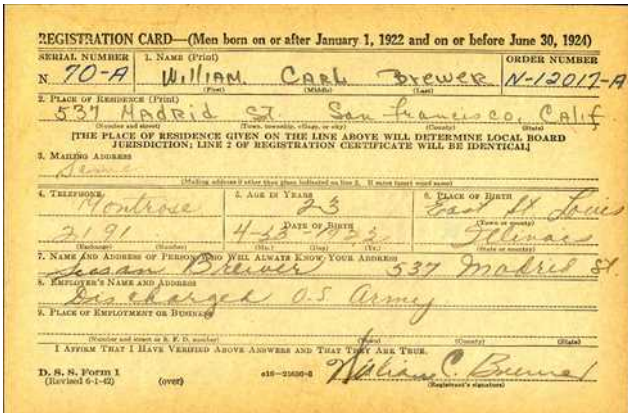 REGISTRATION CARD—(Men born on or after January 1, 1922 and on or before June 30, 1924)
SERIAL NUMBER 1. NAME (Print) ORDER NUMBER
N 70-A WILLIAM CARL BREWER N-12017-A
(First) (Middle) (Last)
2. PLACE OF RESIDENCE (Print)
537 MADRID ST. San Francisco, CALIF
(Number and street) (Town, township, village, or city) (County) (State)
[THE PLACE OF RESIDENCE GIVEN ON THE LINE ABOVE WILL DETERMINE LOCAL BOARD
JURISDICTION; LINE 2 OF REGISTRATION CERTIFICATE WILL BE IDENTICAL]
3. MAILING ADDRESS
Same
(Mailing address if other than place indicated on line 2. If same insert word same)
4. TELEPHONE 5. AGE IN YEARS 6. PLACE OF BIRTH
Montrose 23 East St Louis
DATE OF BIRTH (Town or county)
2191 4-23-1923 Illinois
(Exchange) (Number) (Mo.) (Day) (Yr.) (State or country)
7. NAME AND ADDRESS OF PERSON WHO WILL ALWAYS KNOW YOUR ADDRESS
Susan Brewer 537 Madrid St.
8. EMPLOYER'S NAME AND ADDRESS
Discharged U.S Army
9. PLACE OF EMPLOYMENT OR BUSINESS
(Number and street or R. F. D. number) (Town) (County) (State)
I AFFIRM THAT I HAVE VERIFIED ABOVE ANSWERS AND THAT THEY ARE TRUE.
D. S. S. Form 1 William C. Brewer
(Revised 6-1-42) (over) (Registrant's signature)